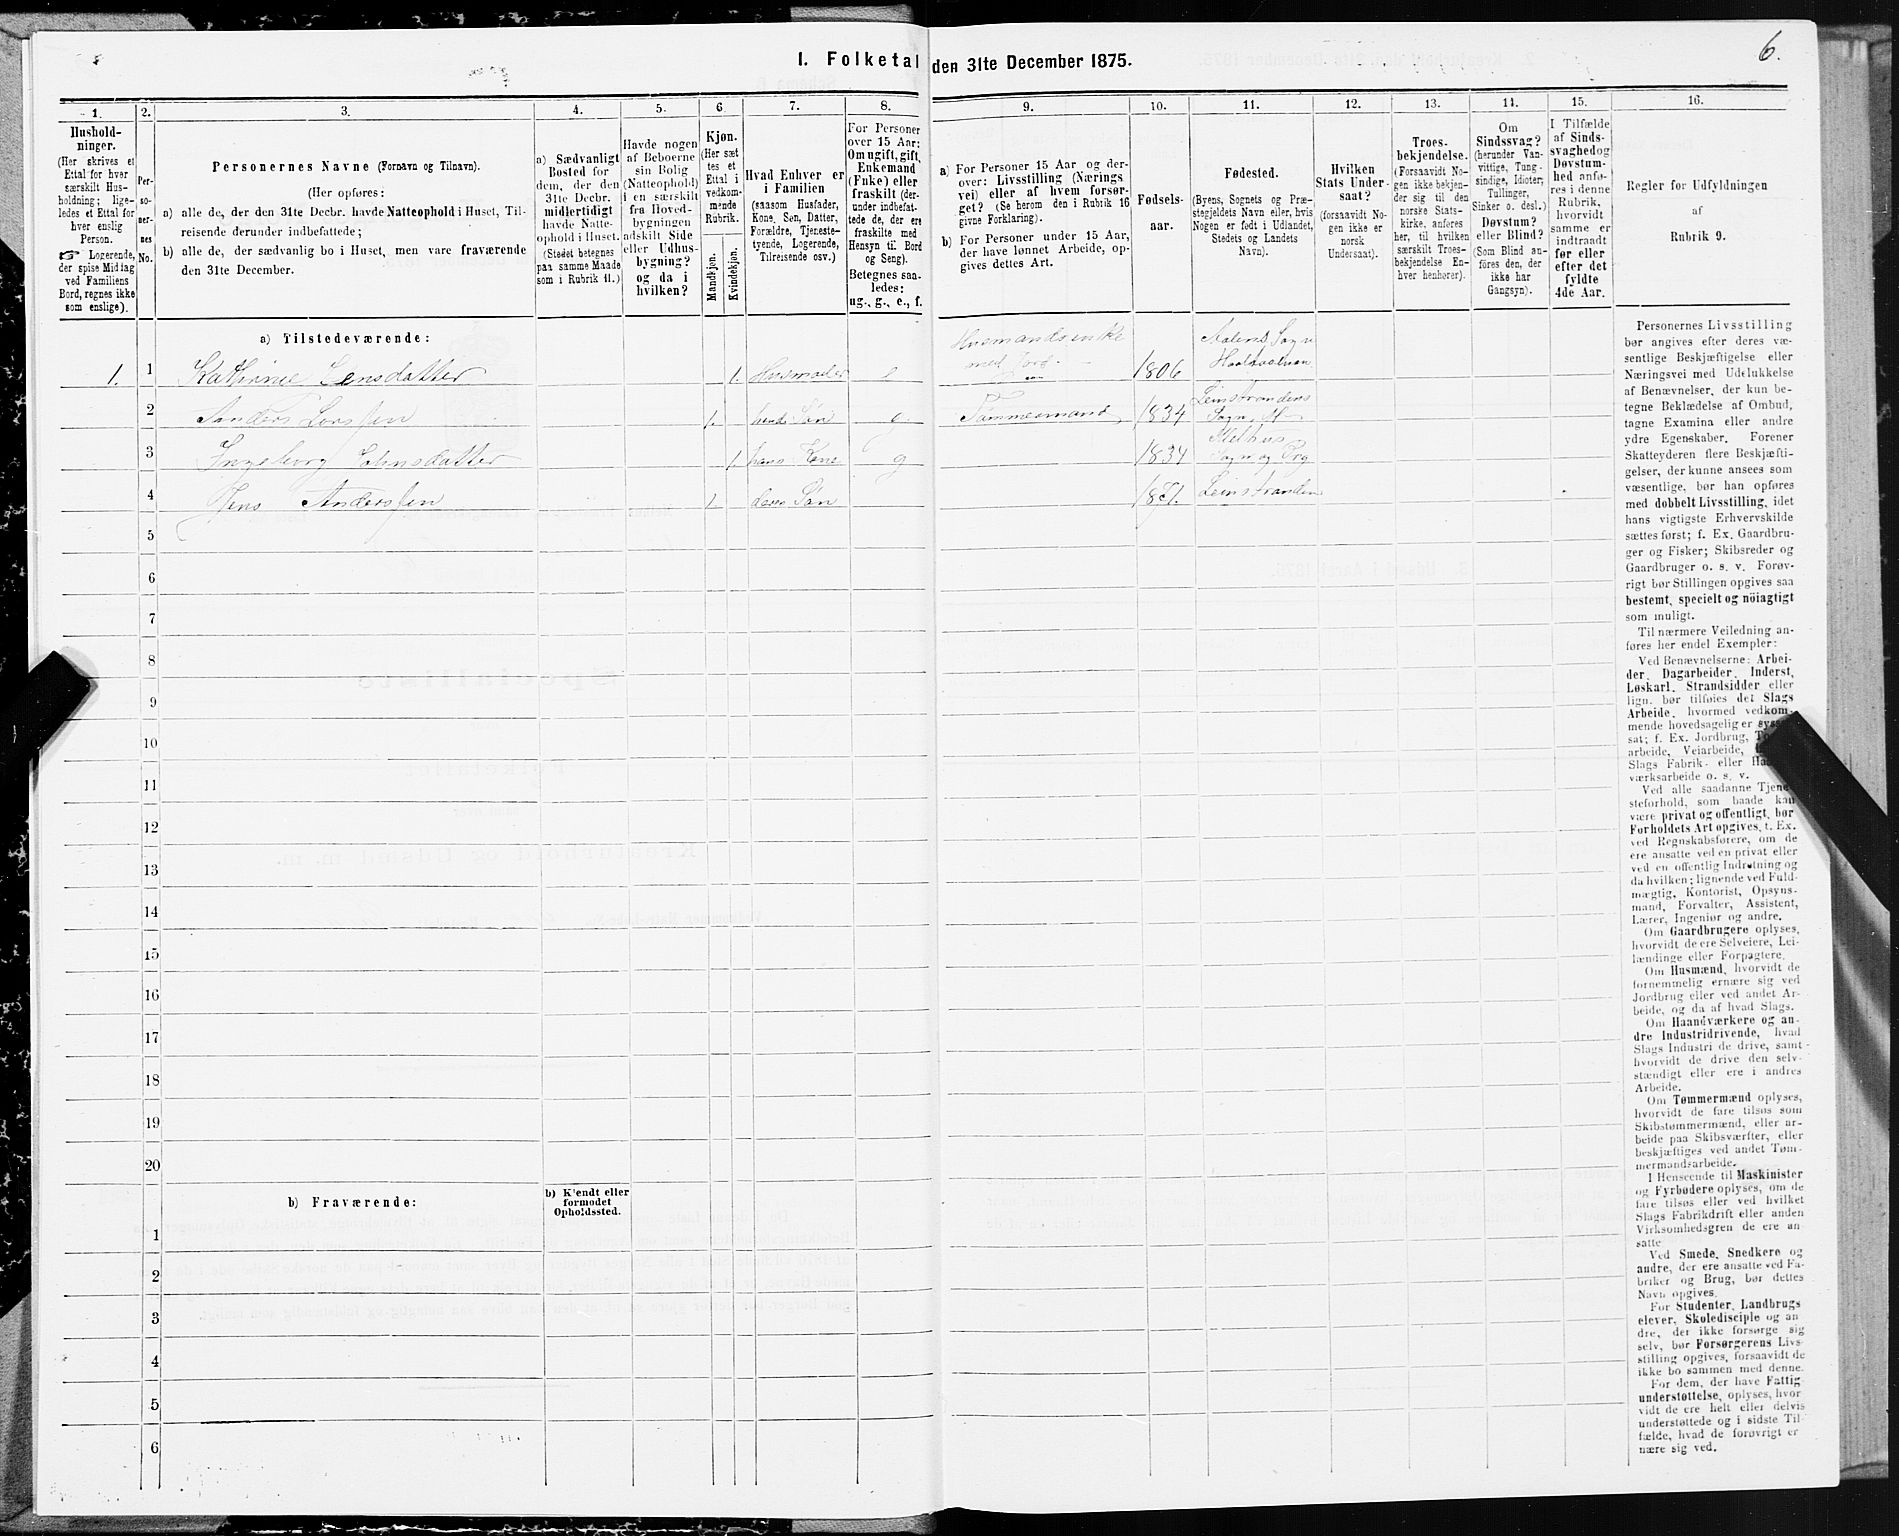 I. Folketal den 31te December 1875.
6.
1.
2.
3.
4.
5.
6
7.
8.
9.
10.
11.
12.
13.
14.
15.
16.
Hushold-
ninger.
(Her skrives et
Ettal for hver
særskilt Hus-
holdning; lige-
ledes et Ettal for
hver enslig
Person.
☞ Logerende,
der spise Middag
ved Familiens
Bord, regnes ikke
som enslige).
Per-
so-
ner-
nes
No.
Personernes Navne (Fornavn og Tilnavn).
(Her opføres:
a) alle de, der den 31te Decbr. havde Natteophold i Huset, Til-
reisende derunder indbefattede;
b) alle de, der sædvanlig bo i Huset, men vare fraværende
den 31te December.
a) Sædvanligt
Bosted for
dem, der den
31te Decbr.
midlertidigt
havde Natte-
ophold i Huset.
(Stedet betegnes
paa samme Maade
som i Rubrik 11.)
Havde nogen
af Beboerne
sin Bolig
(Natteophold)
i en særskilt
fra Hoved-
bygningen
adskilt Side
eller Udhus-
bygning?
og da i
hvilken?
Kjøn.
(Her sæt
tes et
Ettal i
vedkom-
mende
Rubrik.
Mandkjøn.
Kvindekjøn.
Hvad Enhver er
i Familien
(saasom Husfader,
Kone, Søn, Datter,
Forældre, Tjeneste-
tyende, Logerende,
Tilreisende osv.)
For Personer
over 15 Aar:
Om ugift, gift,
Enkemand
(Enke) eller
fraskilt (der-
under indbefat-
tede de, der ere
fraskilte med
Hensyn til Bord
og Seng).
Betegnes saa-
ledes:
ug., g., e., f.
a) For Personer 15 Aar og der-
over: Livsstilling (Nærings
vei) eller af hvem forsør-
get? (Se herom den i Rubrik 16
givne Forklaring).
b) For Personer under 15 Aar,
der have lønnet Arbeide, op-
gives dettes Art.
Fødsels-
aar.
Fødested.
(Byens, Sognets og Præ-
stegjeldets Navn eller, hvis
Nogen er født i Udlandet,
Stedets og Landets
Navn).
Hvilken
Stats Under-
saat?
(forsaavidt No-
gen ikke er
norsk
Undersaat).
Troes-
bekjendelse.
(Forsaavidt No-
gen ikke bekjen-
der sig til den
norske Stats-
kirke, anføres
her, til hvilken
særskilt Troes-
bekjendelse En-
hver henhører).
Om
Sindssvag?
(herunder Van-
vittige, Tung-
sindige, Idioter,
Tullinger,
Sinker o. desl.)
Døvstum?
eller Blind?
(Som Blind an-
føres den, der
ikke har
Gangsyn).
I Tilfælde
af Sinds-
svaghed og
Døvstum-
hed anfø-
res i denne
Rubrik,
hvorvidt
samme er
indtraadt
før eller
efter det
fyldte
4de Aar.
Regler for Udfyldningen
af
Rubrik 9.
a) Tilstedeværende:
1. 1 Kathrine Jensdatter 1. Husmoder e Husmandsenke med Jord 1806 Aalens Sogn
2 Anders Larssen 1. hends Søn g Tømmermand 1834 Leinstrandens Sogn
3 Ingeborg Johnsdatter 1. hans Kone g 1834 Melhus Sogn og Prg
4 Jens Anderssen 1. deres Søn 1871. Leinstranden
5
6
7
8
9
10
11
12
13
14
15
16
17
18
19
20
b) Fraværende:
b) Kjendt eller
formodet
Opholdssted.
1
2
3
4
5
6
Personernes Livsstilling
bør angives efter deres væ-
sentlige Beskjæftigelse eller
Næringsvei med Udelukkelse
af Benævnelser, der kun be-
tegne Beklædelse af Ombud,
tagne Examina eller andre
ydre Egenskaber. Forener
Skatteyderen flere Beskjæfti-
gelser, der kunne ansees som
væsentlige, bør han opføres
med dobbelt Livsstilling, idet
hans vigtigste Erhvervskilde
sættes først; f. Ex. Gaardbru-
ger og Fisker; Skibsreder og
Gaardbruger o. s. v. Forøv-
rigt bør Stillingen opgives saa
bestemt, specielt og nöiagtigt
som muligt.
Til nærmere Veiledning an-
føres her endel Exempler:
Ved Benævnelserne: Arbei-
der, Dagarbeider, Inderst,
Løskarl, Strandsidder eller
lign. bør tilføies det Slags
Arbeide, hvormed vedkom-
mende hovedsagelig er syssel-
sat; f. Ex. Jordbrug,
arbeide, Veiarbeide,
Slags Fabrik- eller
værksarbeide o. s. v.
Ved alle saadanne Tjene-
steforhold, som baade kan
være privat og offentligt, bør
Forholdets Art opgives, t. Ex.
ved Regnskabsførere, om de
ere ansatte ved en privat eller
ved en offentlig Indretning og
da hvilken; lignende ved Fuld-
mægtig, Kontorist, Opsyns-
mand, Forvalter, Assistent,
Lærer, Ingeniør og andre.
Om Gaardbrugere oplyses,
hvorvidt de ere Selveiere, Lei-
lændinge eller Forpagtere.
Om Husmænd, hvorvidt de
fornemmelig ernære sig ved
Jordbrug eller ved andet Ar-
beide, og da af hvad Slags.
Om Haandværkere og an-
dre Industridrivende, hvad
Slags Industri de drive, samt
hvorvidt de drive den selv-
stændigt eller ere i andres
Arbeide.
Om Tømmermænd oplyses,
hvorvidt de fare tilsøs som
Skibstømmermænd, eller ar-
beide paa Skibsværfter, eller
beskjæftiges ved andet Tøm-
mermandsarbeide.
I Henseende til Maskinister
og Fyrbødere oplyses, om de
fare tilsøs eller ved hvilket
Slags Fabrikdrift eller anden
Virksomhedsgren de ere an-
satte
Ved Smede, Snedkere og
andre, der ere ansatte ved Fa-
briker og Brug, bør dettes
Navn opgives.
For Studenter, Landbrugs
elever, Skoledisciple og an
dre, der ikke forsørge sig
selv, bør Forsørgerens Livs-
stilling opgives, forsaavidt de
ikke bo sammen med denne.
For dem, der have Fattig
understøttelse, oplyses, hvor
vidt de ere helt eller delvis
understøttede og i sidste Til-
fælde, hvad de forøvrigt er
nære sig ved.